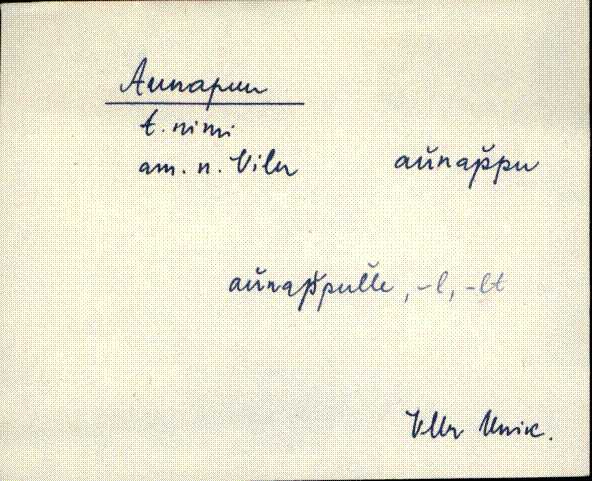 Aunapuu
t. nimi
am. n. Vilu aŭnap̆pu
aŭnap̆pulle, -l, -lt